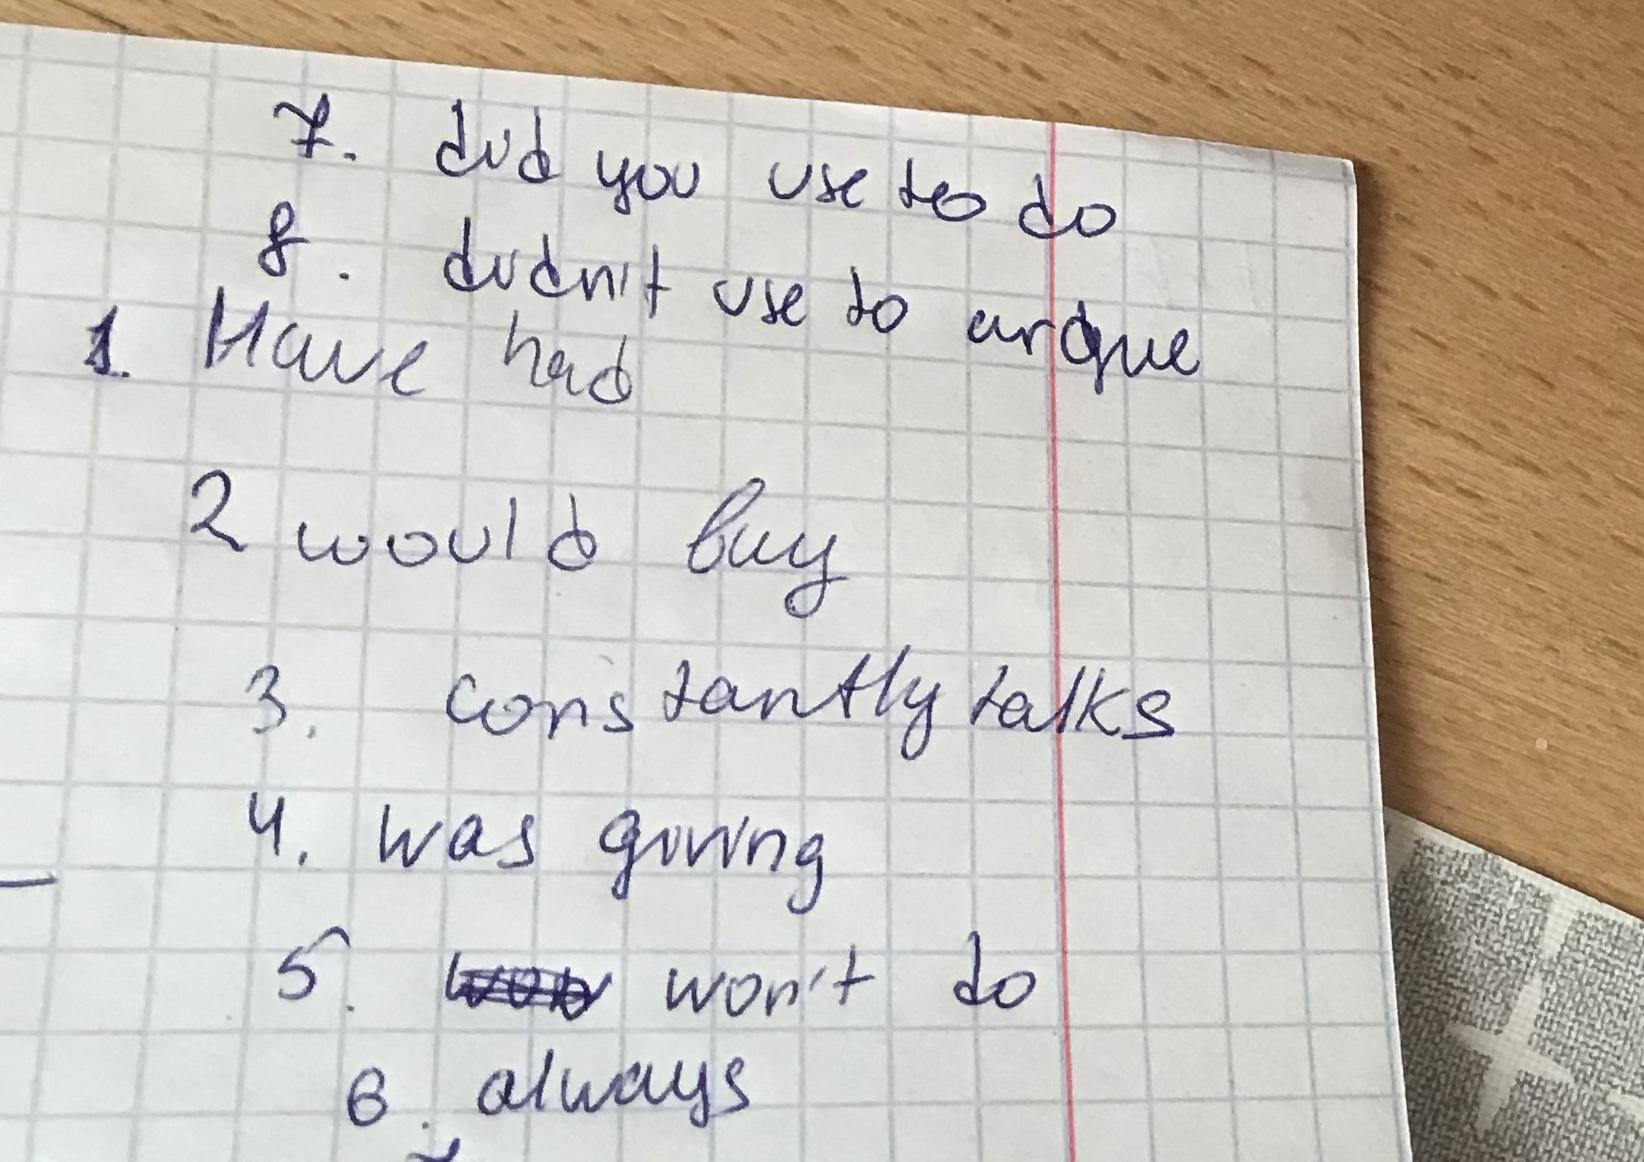 7. did you use to do
8. didn't use to argue
1. Have had
2 would buy
3. constantly talks
4. was giving
5. won't do
6. always